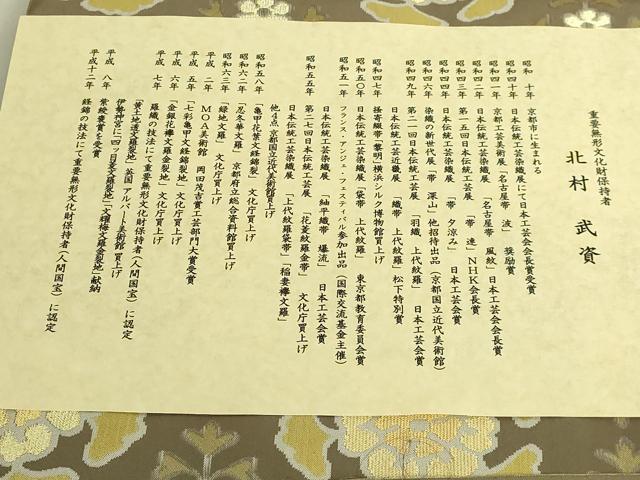 重要無形文化財保持者
北村 武資
昭和 十年 京都市に生まれる
昭和四十年 日本伝統工芸染織展にて日本工芸会会長賞受賞
京都工芸美術展「名古屋帯 波」 奨励賞
昭和四一年 日本伝統工芸染織展「名古屋帯 風紋」日本工芸会会長賞
昭和四二年 日本伝統工芸染織展「帯 連」NHK会長賞
昭和四三年 第一五回日本伝統工芸展 「帯 夕涼み」 日本工芸会賞
昭和四四年 日本伝統工芸染織展
昭和四六年 染織の新世代展「帯 深山」他招待出品(京都国立近代美術館)
昭和四九年 第二一回日本伝統工芸展 「羽織 上代紋羅」 日本工芸会賞
日本伝統工芸近畿展 「織帯 上代紋羅」松下特別賞
昭和四七年 搔寄綴帯「黎明」横浜シルク博物館買上げ
昭和五〇年 日本伝統工芸染織展「袋帯 上代紋羅」 東京都教育委員会賞
昭和五一年 フランス・アンジェ・フェスティバル参加出品(国際交流基金主催)
日本伝統工芸染織展 「紬平織帯 爆流」 日本工芸会賞
昭和五五年 第二七回日本伝統工芸展 「花菱紋羅金帯」 文化庁買上げ
日本伝統工芸染織展 「上代紋羅袋帯」「稲妻襷文羅」
他4点 京都国立近代美術館買上げ
昭和五八年 「亀甲花葉文経錦裂」 文化庁買上げ
昭和六二年 「忍冬華文羅」 京都府立総合資料館買上げ
昭和六三年 「緑地文羅」 文化庁買上げ
平成 二年 MOA美術館 岡田茂吉賞工芸部門大賞受賞
平成 五年 「七彩亀甲文経錦裂」文化庁買上げ
平成 六年 「金銀花襷文羅金裂地」文化庁買上げ
平成 七年 羅織の技法にて重要無形文化財保持者(人間国宝)に認定
「黄土地透文羅裂地」英国 アルバート美術館 買上げ
平成 八年 伊勢神宮に「四ッ目菱文羅裂地」「文襷梅文羅金裂地」献納
紫綬褒賞を受賞
平成十二年 経錦の技法にて重要無形文化財保持者(人間国宝)に認定